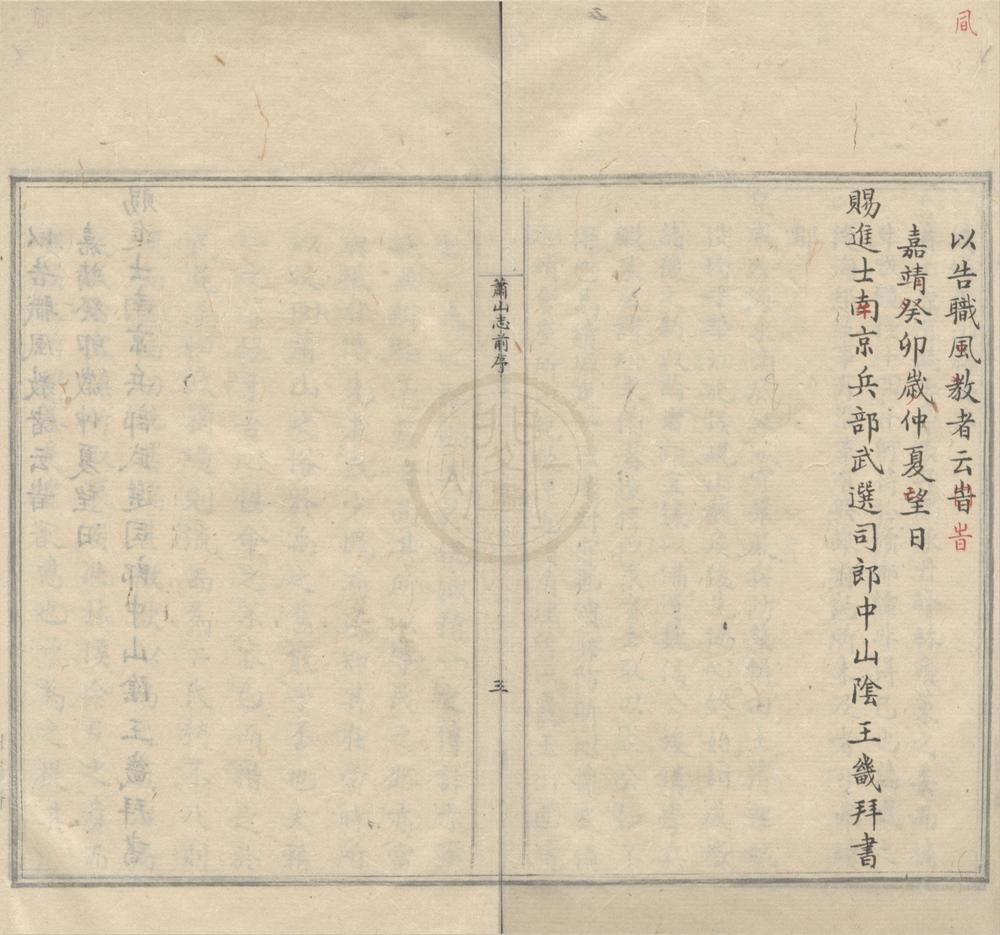 以告職風教者云旹
嘉靖癸卯歲仲夏望日
賜進士南京兵部武選司郎中山陰王畿拜書
蕭山志前序
三
旹